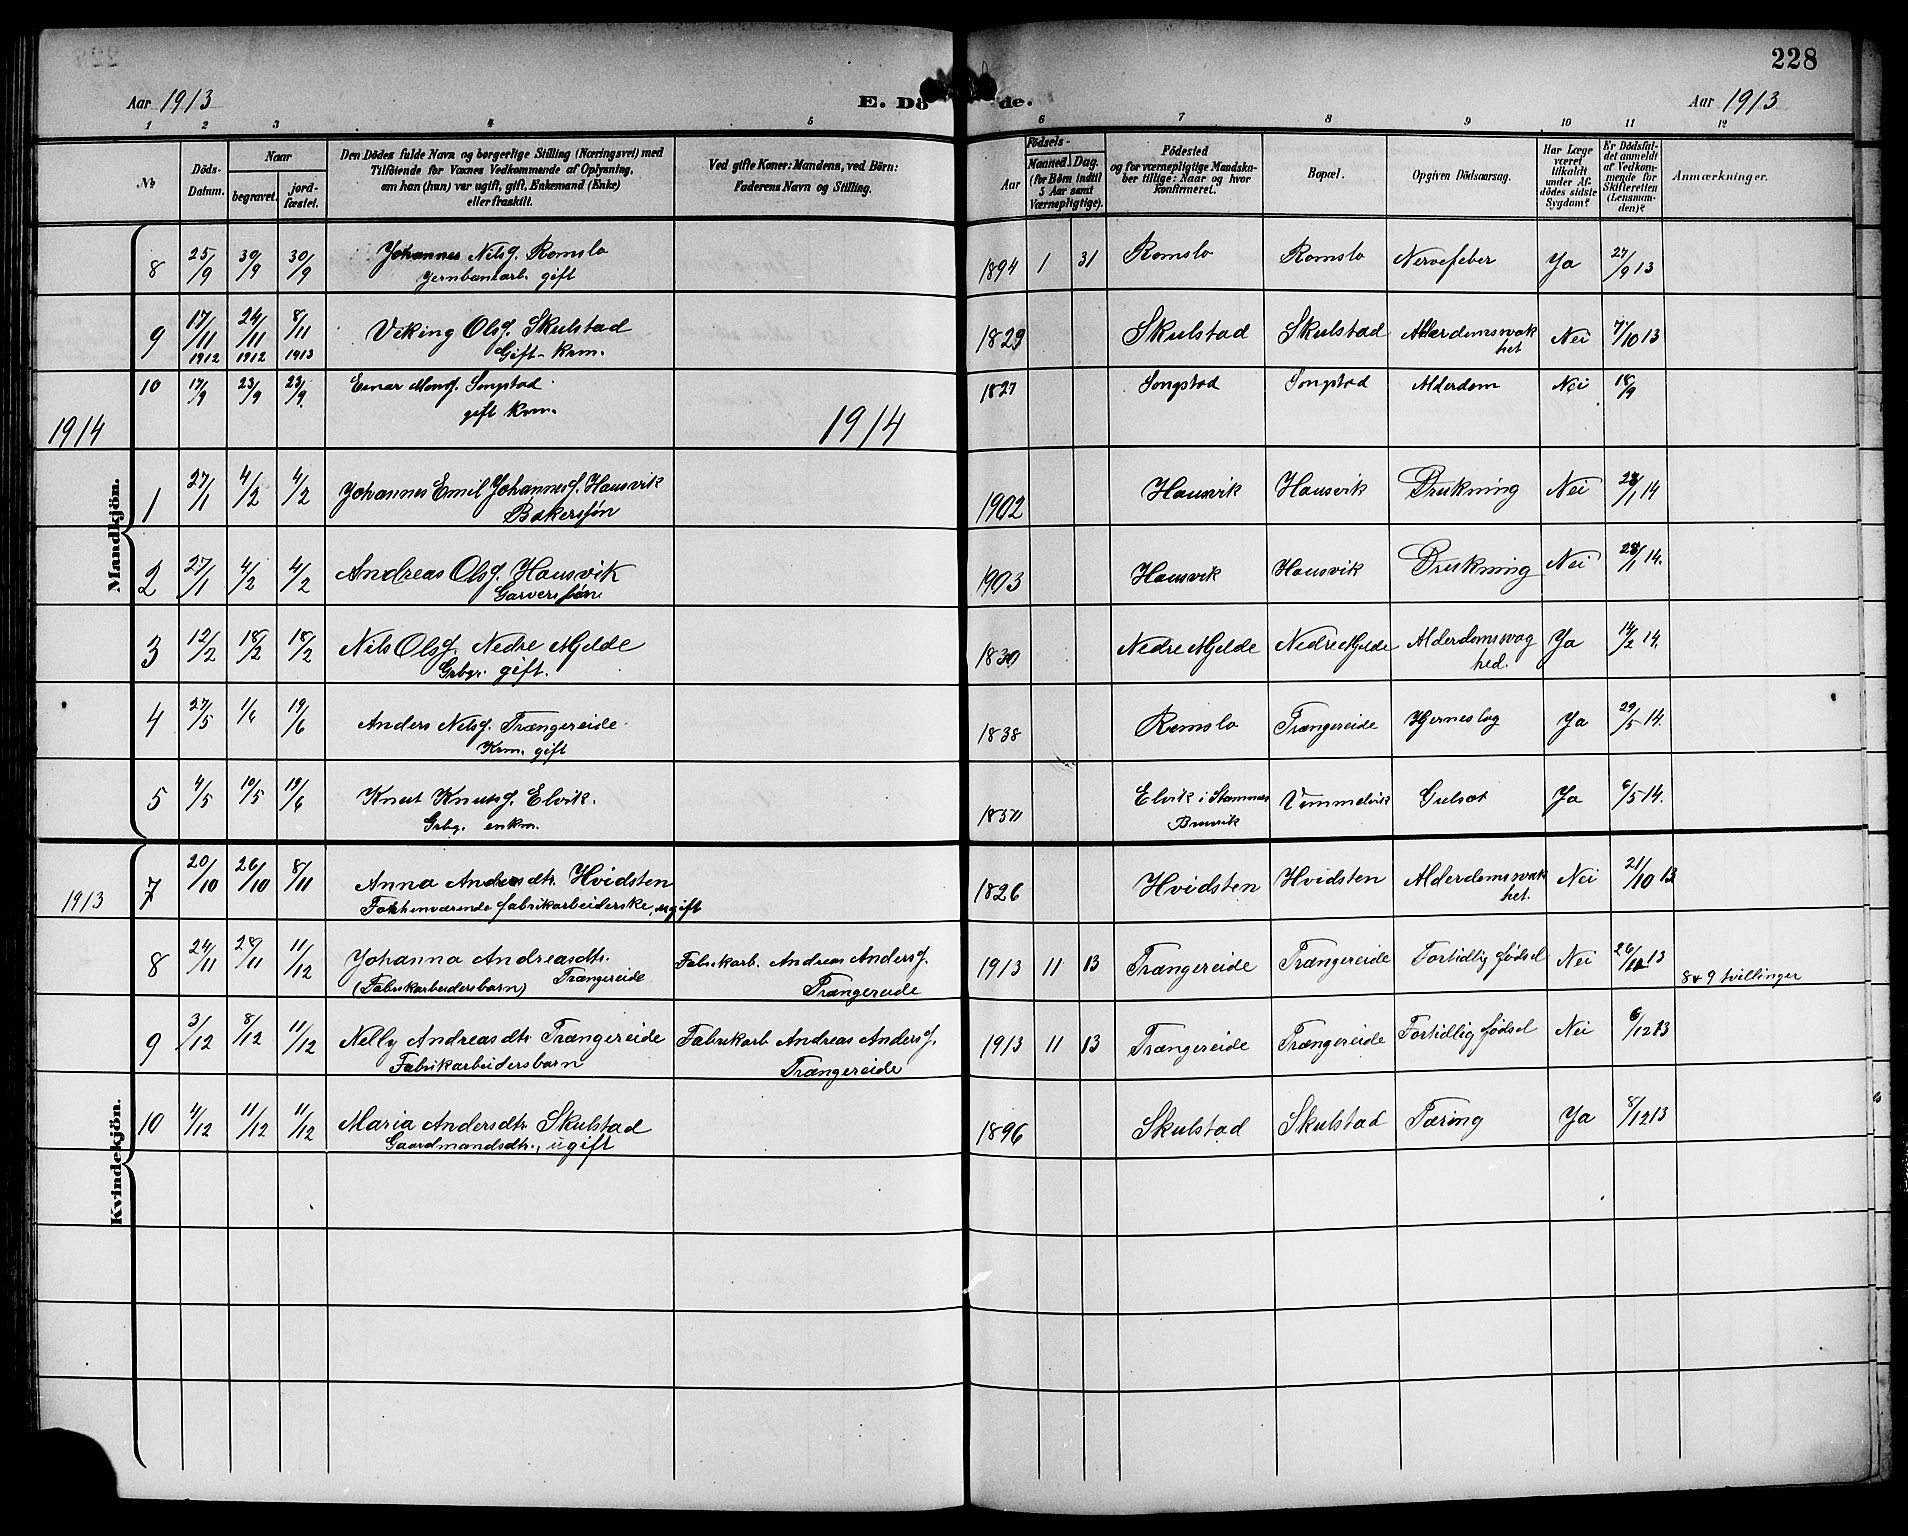 228
Aar 1913
E. Dö
de.
Aar 1913
1 2 3 4 5 6 7 8 9 10 11 12
№
Döds-Datum.
Naar
begravet.
jord-fæstet.
Den Dödes fulde Navn og borgerlige Stilling (Næringsvei) med
Tilföiende for Voxnes Vedkommende af Oplysning,
om han (hun) var ugift, gift, Enkemand (Enke)
eller fraskilt.
Ved gifte Koner: Mandens, ved Börn:
Faderens Navn og Stilling.
Födsels-
Aar
Maaned. Dag.
(for Börn indtil
5 Aar samt
Værnepligtige).
Födested
og for værnepligtige Mandska-
ber tillige: Naar og hvor
konfirmeret.
Bopæl.
Opgiven Dödsaarsag.
Har Læge
været
tilkaldt
under Af-
dödes sidste
Sygdom?
Er Dödsfal-
det anmeldt
af Vedkom-
mende for
Skifteretten
(Lensman-
den)?
Anmærkninger.
Mandkjön.
8 25/9 30/9 30/9 Johannes Nilsf. Romslo 1894 1 31 Romslo Romslo Nervefeber Ja 27/9 13
Jernbanearb. gift
9 17/11 1912 24/11 1912 8/11 1913 Viking Olsf. Skulstad 1829 Skulstad Skulstad Alderdomsvak Nei 7/10 13
Gift - krm. het
10 17/9 23/9 23/9 Einar Monsf. 1827 Alderdom Nei 18/9
gift krm.
1914 1914
1 27/1 4/2 4/2 Johannes Emil Johannesf. Hausvik 1902 Hausvik Hausvik Drukning Nei 28/1 14
Bakersføn
2 27/1 4/2 4/2 Andreas Olsf. Hausvik 1903 Hausvik Hausvik Drukning Nei 28/1 14.
Garversføn
3 12/2 18/2 18/2 Nils Olsf. Nedre Mjelde 1830 Nedre Mjelde Nedre Mjelde Alderdomsvag Ja 14/2 14.
Grbgr. gift. hed.
4 27/5 1/6 19/6 Anders Nilsf. Trængereide 1838 Romslo Trængereide Hjerneslag Ja 29/5 14.
Krm. gift
5 4/5 10/5 19/6 Knut Knutsf. Elvik. Elvik i Stamnes Vimmelvik Gulsot Ja 6/5 14.
Grbg. enkm. Bruvik
Kvindekjön.
1913 7 20/10 26/10 8/11 Anna Andersdtr. Hvidsten 1826 Hvidsten Hvidsten Alderdomsvak Nei 21/10 13
Forhenværende fabrikarbeiderske, ugift het.
8 24/11 28/11 11/12 Johanna Andreasdtr. Fabrikarb. Andreas Andersf. 1913 11 13 Trængereide Trængereide Fortidlig fødsel Nei 26/11 13
(Fabrikarbeidersbarn) Trængereide Trængereide 8 & 9 tvillinger
9 3/12 8/12 11/12 Nelly Andreasdtr. Trængereide Fabrikarb Andreas Andersf. 1913 11 13 Trængereide Trængereide Fortidlig fødsel Nei 6/12 13
Fabrikarbeidersbarn Trængereide
10 4/12 11/12 11/12 Maria Andersdtr. Skulstad 1896 Skulstad Skulstad Tæring Ja 8/12 13
Gaardmandsdtr., ugift